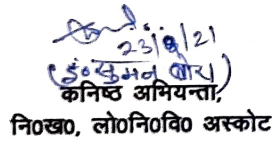 23/9/21
(इं० सुमन बोरा)
कनिष्ठ अभियन्ता,
नि0ख0, लो0नि0वि0 अस्कोट